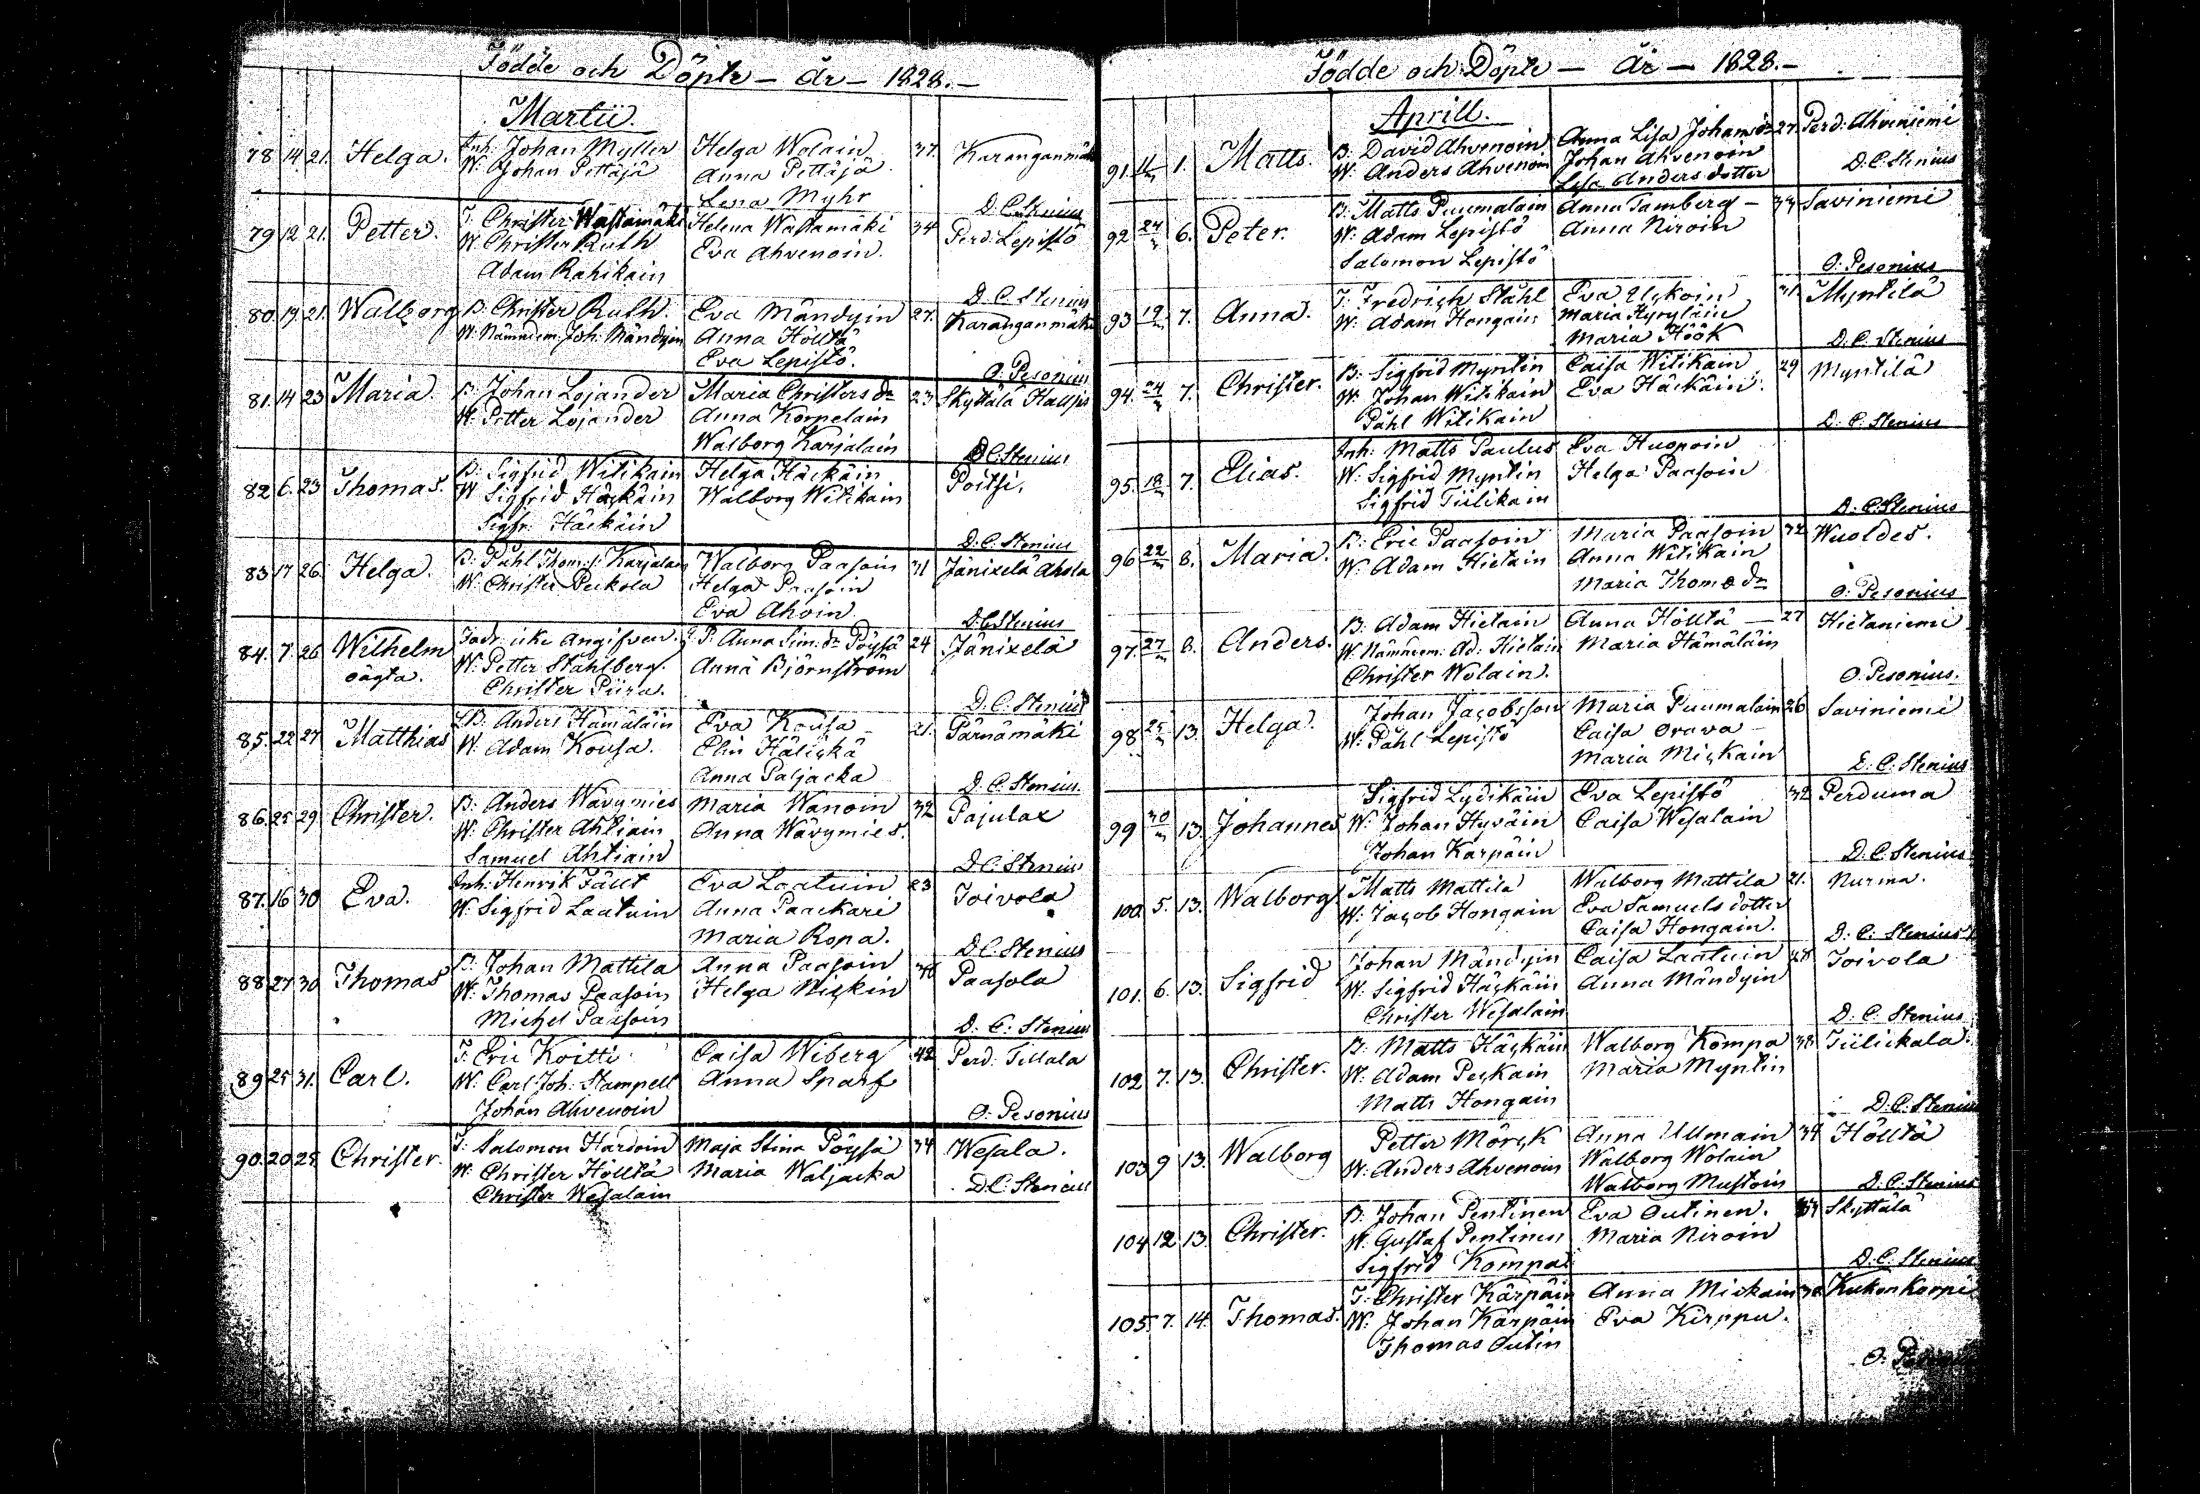 Födde och Döpte – år – 1828. –
Martii.
78. 14. 21. Helga. Inh: Johan Myller Helga Wolain 37. Karanganmäki
W: Johan Pettäjä Anna Pettäjä
Lena Myhr D. C. Stenius
79 12 21. Petter. T. Christer Wastamäki Helena Wastamäki 34 Perd: Lepistö
W: Christer Ruth Eva Ahvenoin.
Adam Rahikain D. C. Stenius
80. 19. 21. Walborg B: Christer Ruth. Eva Mändyin 27. Karanganmäki
W: Nämndem. Joh: Mändyin Anna Höltä
Eva Lepistö. O. Pesonius
81. 14 23 Maria. B: Johan Lojander Maria Christers dr 23 Skyttälä
W: Petter Lojander Anna Korpelain
Walborg Karjalain D. C. Stenius
82 6. 23 Thomas. B: Sigfrid Witikain Helga Häckäin Poitsi,
W Sigfrid Häckäin Walborg Witikain
Sigfr: Häckäin D: C. Stenius
83 17 26. Helga. B: Påhl Thom: s: Karjalain Walborg Paasoin 31 Jänixelä Ahola
W: Christer Peckola Helga Paasoin
Eva Ahoin D. C. Stenius
84. 7. 26 Wilhelm Fadr: icke angifven. Anna Sim: dr Pöysä 24 Jänixelä
oägta. W: Petter Ståhlberg. Anna Björnström
Christer Piira. D. C. Stenius
85. 22 27 Matthias Anders Hämäläin Eva Kousa – 21. Pärnämäki
W. Adam Kousa. Elin Hälickä
Anna Paljacka D. C. Stenius.
86. 25 29 Christer. B: Anders Wävymies Maria Wänoin 32 Pajulax
W: Christer Ahtiain Anna Wävymies.
Samuel Ahtiain D. C. Stenius
87. 16 30 Eva. Inh: Henrik Fällt Eva Laatuin 23 Toivola
W: Sigfrid Laatuin Anna Paackari
Maria Ropa. D. C. Stenius
88 27 30 Thomas B: Johan Mattila Anna Paasoin Paasola
W: Thomas Paasoin Helga Nisskin
Michel Paasoin D. C. Stenius
89 25 31. Carl. T: Eric Koitti Caisa Wiberg 42 Perd: Tillala
W. Carl Joh: Stampell Anna Sparf
Johan Ahvenoin O: Pesonius
90. 20 25 Christer. T: Salomon Hardoin Maja Stina Pöysä 34 Wesala.
W: Christer Höltä Maria Waljacka
Christer Wesalain D. C. Stenius
Födde och Döpte – År – 1828. –
Aprill.
91. 1. Matts. B: David Ahvenoin Anna Lisa Johansdr 27. Perd: Ahveniemi
W: Anders Ahvenoin Johan Ahvenoin D. C. Stenius
Lisa Anders dotter
92 24 6. Peter. B: Matts Puumalain Anna Tamberg – Saviniemi
W: Adam Lepistö Anna Niroin
Salomon Lepistö O: Pesonius
93 19 7. Anna. T: Fredrich Ståhl Eva Uskoin 31 Myntilä
W: Adam Hongain Maria Hyryläin
Maria Höök D. C. Stenius
94. 24 7. Christer. B: Sigfrid Myntin Caisa Witikain 29 Myntilä
W: Johan Witikain Eva Häckäin.
Påhl Witikain D. C. Stenius
95. 18 7. Elias. Inh: Matts Paulus Eva Huopoin
W: Sigfrid Myntin Helga Paasoin
Sigfrid Tiilikain D. C. Stenius
96 22 8. Maria. B: Eric Paasoin Maria Paasoin 32 Wuoldes.
W: Adam Hietain Anna Witikain
Maria Thomædr O: Pesonius
97. 27 8. Anders. B: Adam Hietain Anna Höltä – 27 Hietaniemi
W: Nämndem: Ad: Hietain Maria Hämäläin
Christer Wolain. O. Pesonius.
98 25 13. Helga. Johan Jacobsson Maria Puumalain 26 Saviniemi
W: Påhl Lepistö Caisa Orava –
Maria Misskain D: C: Stenius
99 30 13. Johannes Sigfrid Lydikäin Eva Lepistö 32 Perduma
W: Johan Hyväin Caisa Wesalain
Johan Kärpäin D: C. Stenius
100. 5. 13. Walborg Matts Mattila Walborg Mattila 21. Nurma.
W: Jacob Hongain Eva Samuels dotter
Caisa Hongain. D: C: Stenius
101. 6. 13. Sigfrid Johan Mändyin Caisa Laatuin Toivola
W: Sigfrid Häckäin Anna Mändyin
Christer Wesalain D: C. Stenius
102. 7. 13. Christer. B: Matts Häckäin Walborg Kompa 38 Tiilickala.
W: Adam Peskain Maria Myntin
Matts Hongain D: C: Stenius
103 9 13. Walborg Petter Mörsk Anna Ullmain 34 Höltä
W: Anders Ahvenoin Walborg Wolain
Walborg Mustoin D. C. Stenius
104 12 13. Christer. B. Johan Pentinen Eva Outinen. Skyttälä
W. Gustaf Pentinen Maria Niroin
Sigfrid Kompai D. C. Stenius
105. 7. 14. Thomas. T: Christer Kärpäin Anna Miskain Kukonkorpi
W: Johan Kärpäin Eva Kirppu.
Thomas Outin O: